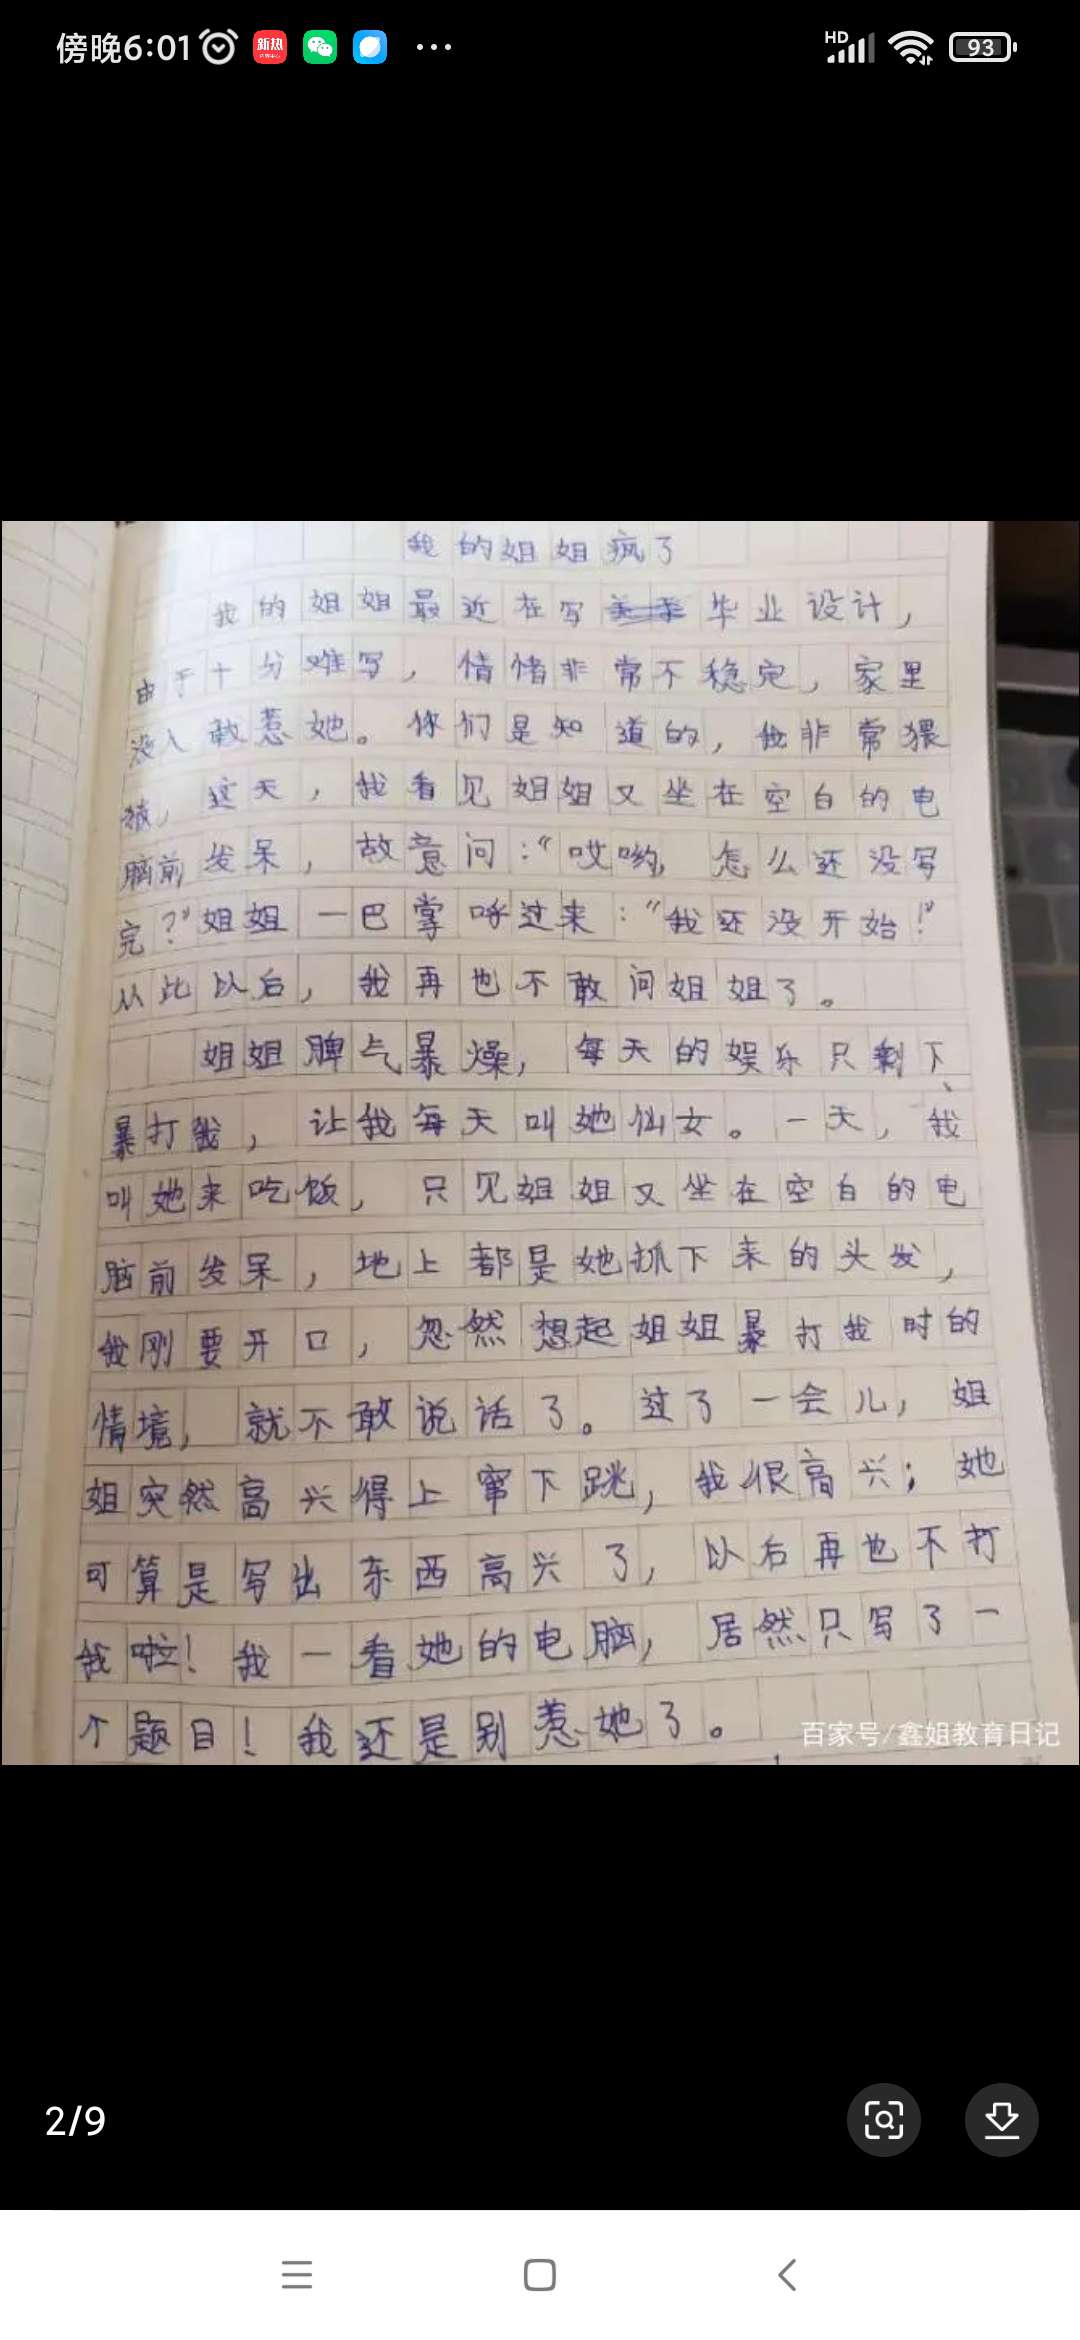 傍晚6:01
新热
HD
93
我的姐姐疯了
我的姐姐最近在写毕业设计，
由于十分难写，情绪非常不稳定，家里
没人敢惹她。你们是知道的，我非常猥
琐，这天，我看见姐姐又坐在空白的电
脑前发呆，故意问：“哎哟，怎么还没写
完？”姐姐一巴掌呼过来：“我还没开始！”
从此以后，我再也不敢问姐姐了。
姐姐脾气暴燥，每天的娱乐只剩下
暴打我，让我每天叫她仙女。一天，我
叫她来吃饭，只见姐姐又坐在空白的电
脑前发呆，地上都是她抓下来的头发，
我刚要开口，忽然想起姐姐暴打我时的
情境，就不敢说话了。过了一会儿，姐
姐突然高兴得上窜下跳，我很高兴；她
可算是写出东西高兴了，以后再也不打
我啦！我一看她的电脑，居然只写了一
个题目！我还是别惹她了。
百家号/鑫姐教育日记
2/9